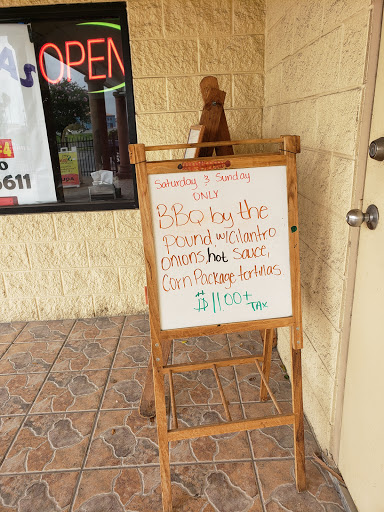 OPEN
Saturday & Sunday
ONLY
BBQ by the
Pound w/Cilantro
onions, hot Sauce,
Corn Package tortillas.
$1100+ TAX